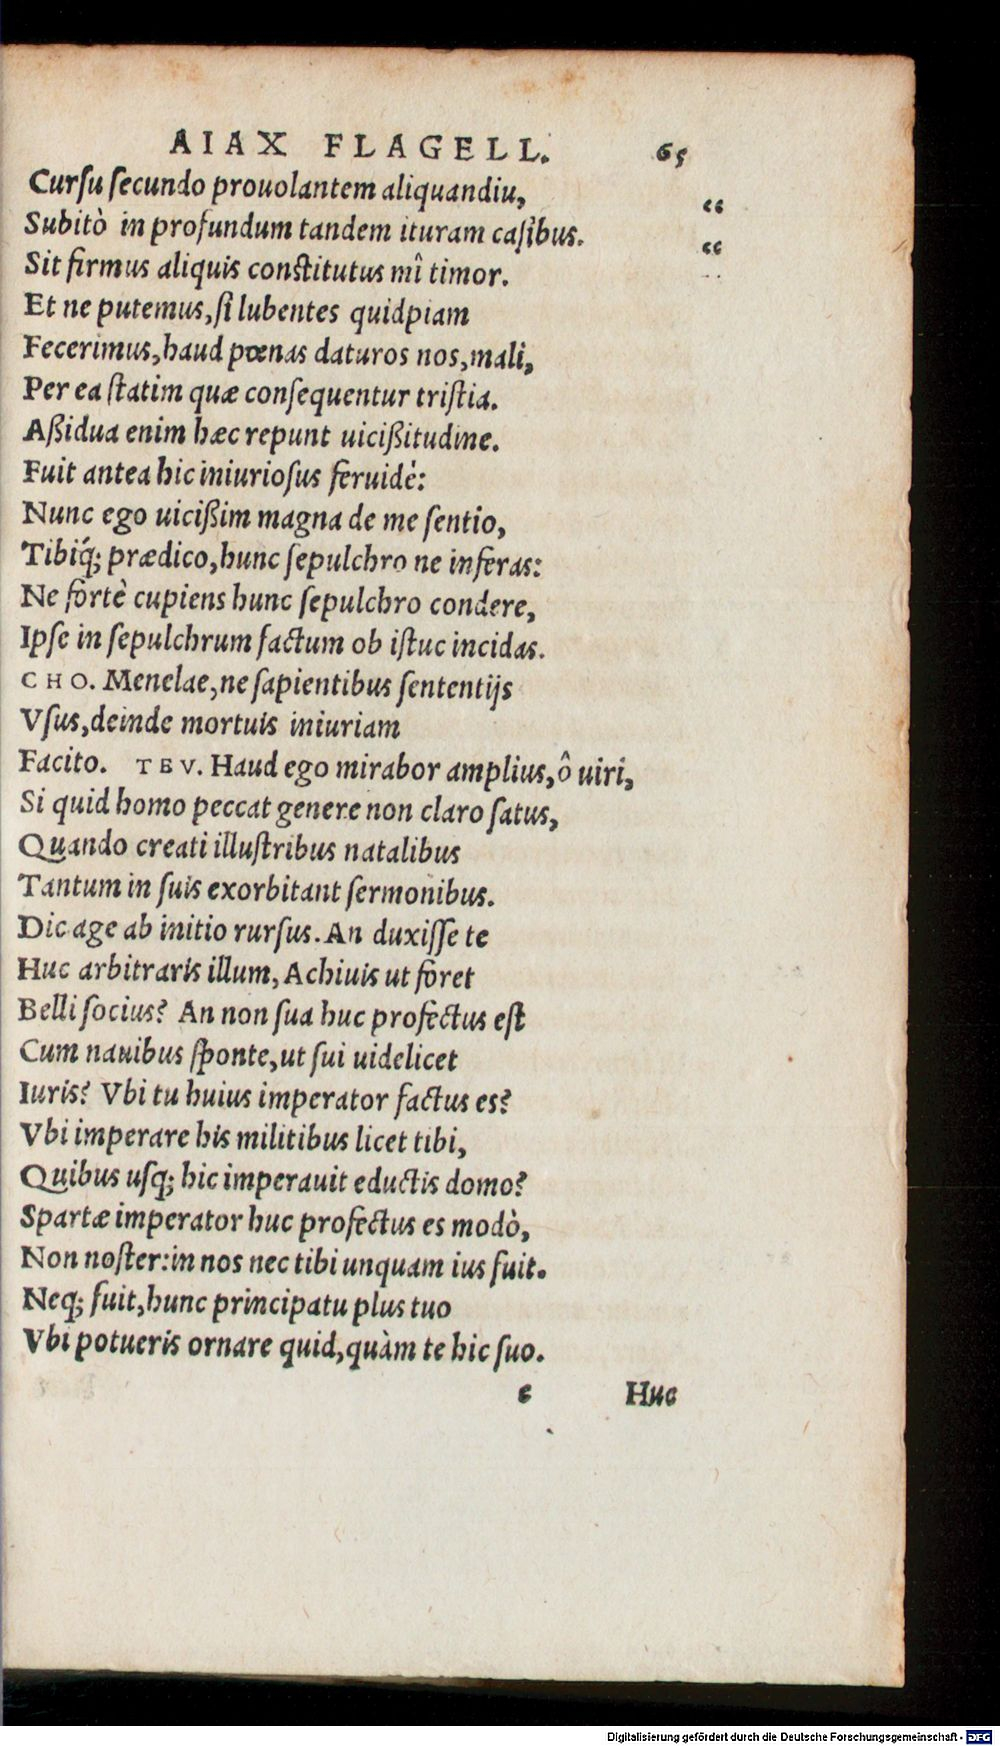 AIAX FLAGELL. 65
Cursu secundo prouolantem aliquandiu, “
Subitò in profundum tandem ituram casibus. “
Sit firmus aliquis constitutus mî timor.
Et ne putemus, si lubentes quidpiam
Fecerimus, haud pœnas daturos nos, mali,
Per ea statim quæ consequentur tristia.
Aßidua enim hæc repunt uicißitudine.
Fuit antea hic iniuriosus feruidè:
Nunc ego uicißim magna de me sentio,
Tibiq́; prædico, hunc sepulchro ne inferas:
Ne fortè cupiens hunc sepulchro condere,
Ipse in sepulchrum factum ob istuc incidas.
CHO. Menelae, ne sapientibus sententijs
Vsus, deinde mortuis iniuriam
Facito. TEV. Haud ego mirabor amplius, ô uiri,
Si quid homo peccat genere non claro satus,
Quando creati illustribus natalibus
Tantum in suis exorbitant sermonibus.
Dic age ab initio rursus. An duxisse te
Huc arbitraris illum, Achiuis ut foret
Belli socius? An non sua huc profectus est
Cum nauibus sponte, ut sui uidelicet
Iuris? Vbi tu huius imperator factus es?
Vbi imperare his militibus licet tibi,
Quibus usq; hic imperauit eductis domo?
Spartæ imperator huc profectus es modò,
Non noster: in nos nec tibi unquam ius fuit.
Neq; fuit, hunc principatu plus tuo
Vbi potueris ornare quid, quàm te hic suo.
e Huc
Digitalisierung gefördert durch die Deutsche Forschungsgemeinschaft - DFG